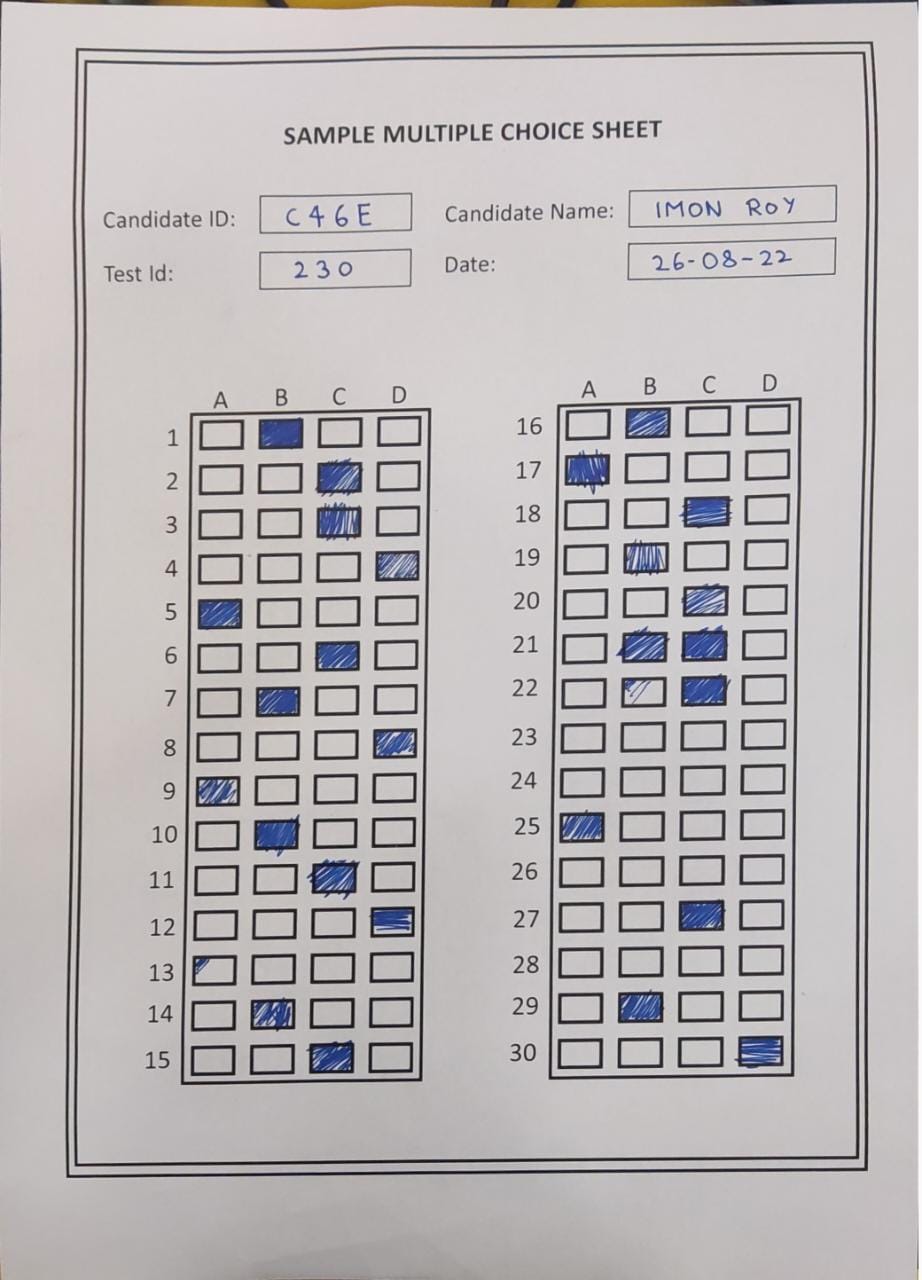 SAMPLE MULTIPLE CHOICE SHEET
Candidate ID: C46E Candidate Name: IMON ROY
Test Id: 230 Date: 26-08-22
A B C D
1
2
3
4
5
6
7
8
9
10
11
12
13
14
15
A B C D
16
17
18
19
20
21
22
23
24
25
26
27
28
29
30